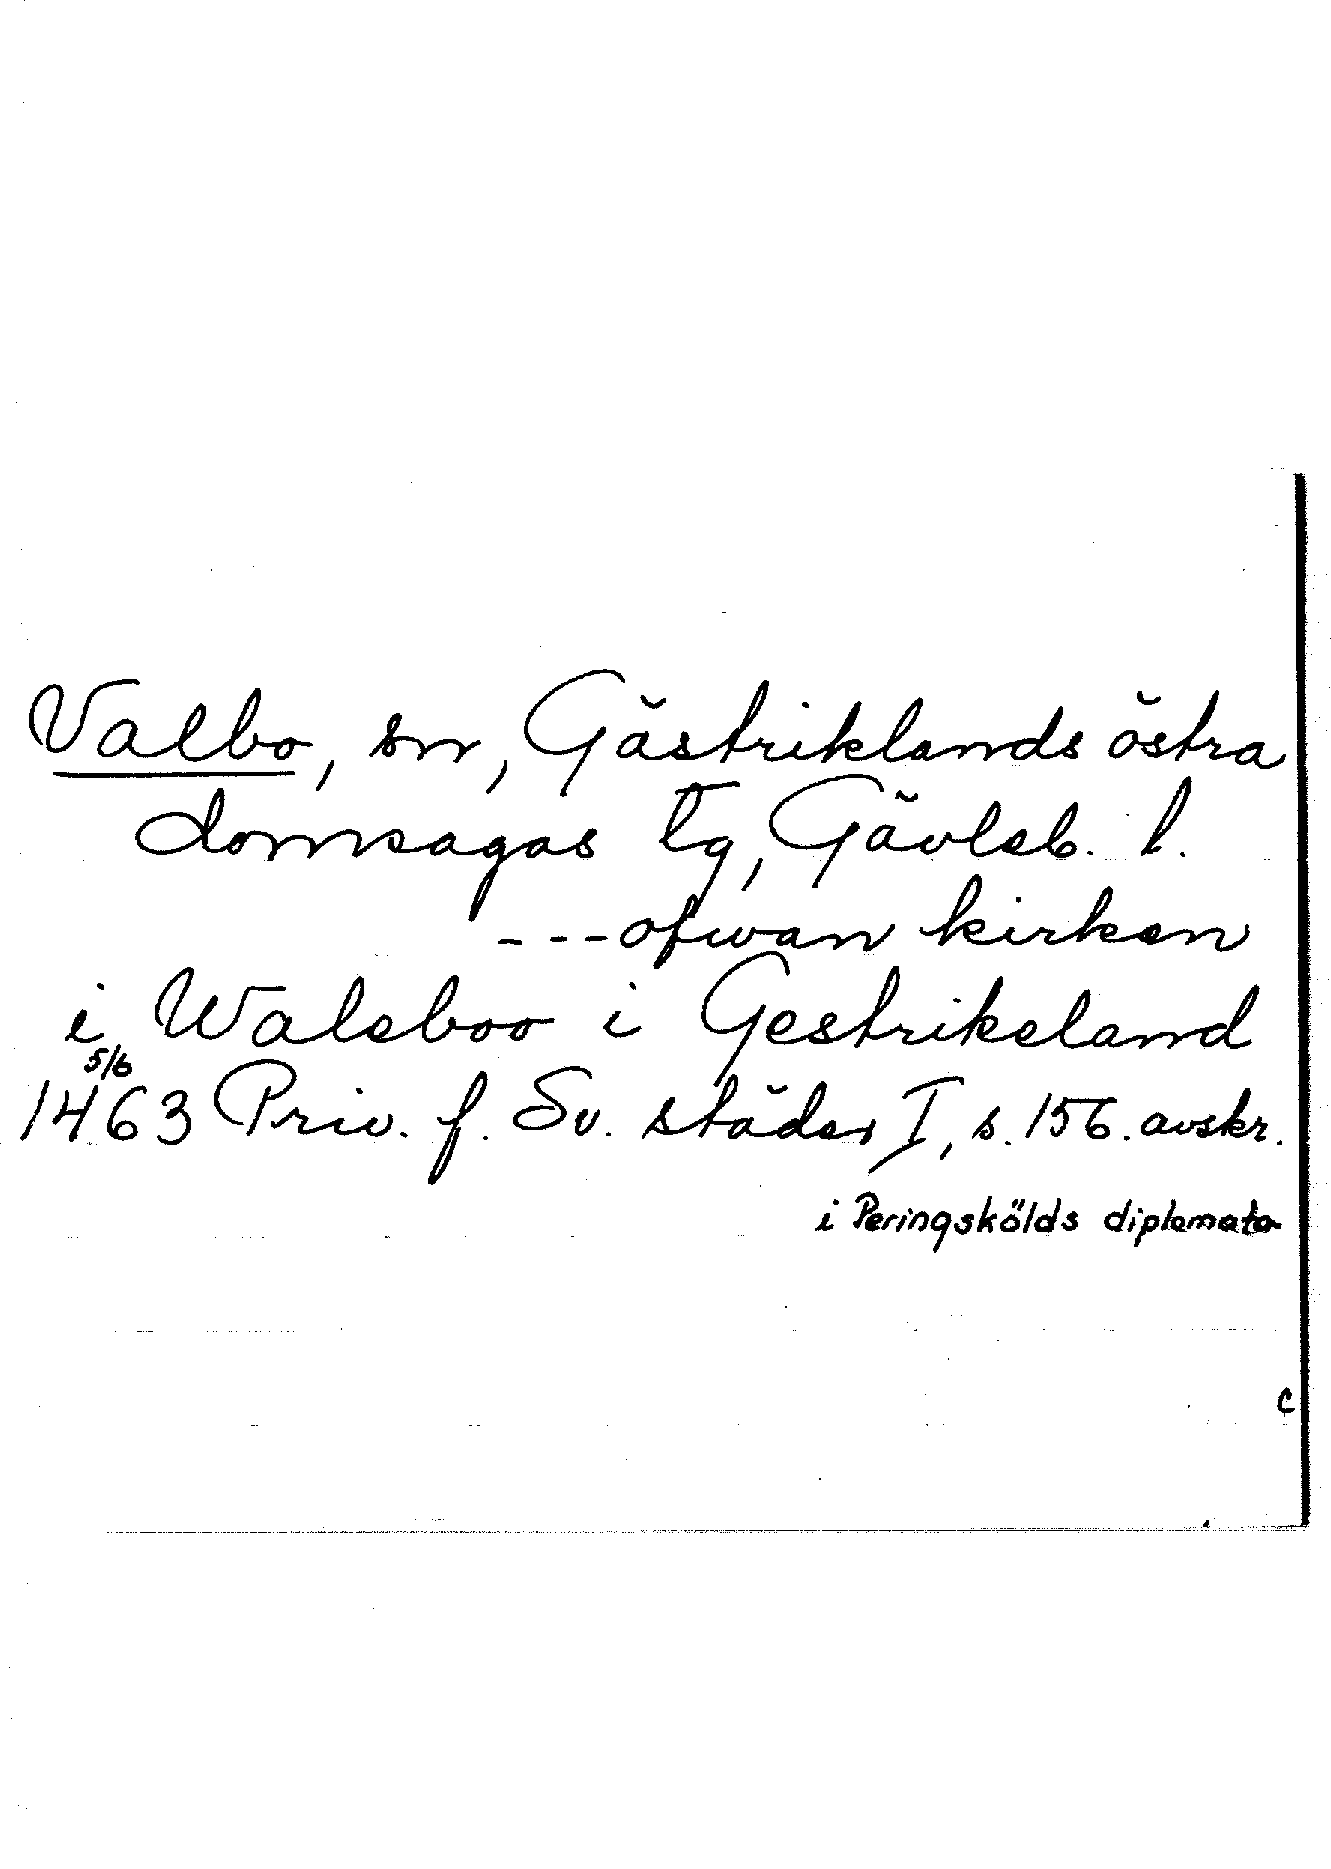 Valbo, sn, Gästriklands östra
domsagas tg, Gävleb. l.
---ofwan kirken
i Waleboo i Gestrikeland
5/6
1463 Priv. f. Sv. städer I, s. 156. avskr.
i Peringskölds diplomata
c